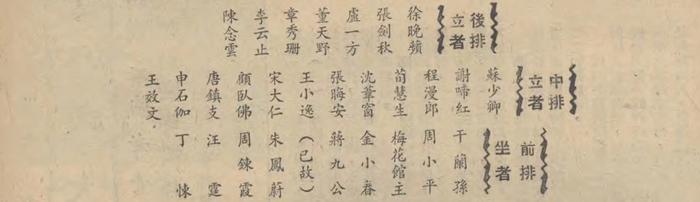 後排立者
徐晚蘋
張劍秋
盧一方
董天野
章秀珊
李云止
陳念雲
中排立者
蘇少卿
謝啼紅
程漫郎
荀慧生
沈葦窗
張晦安
王小逸(已故)
宋大仁
顧臥佛
唐鎮支
申石伽
王效文
前排坐者
干蘭孫
周小平
梅花館主
金小春
蔣九公
朱鳳蔚
周鍊霞
汪霆
丁悚